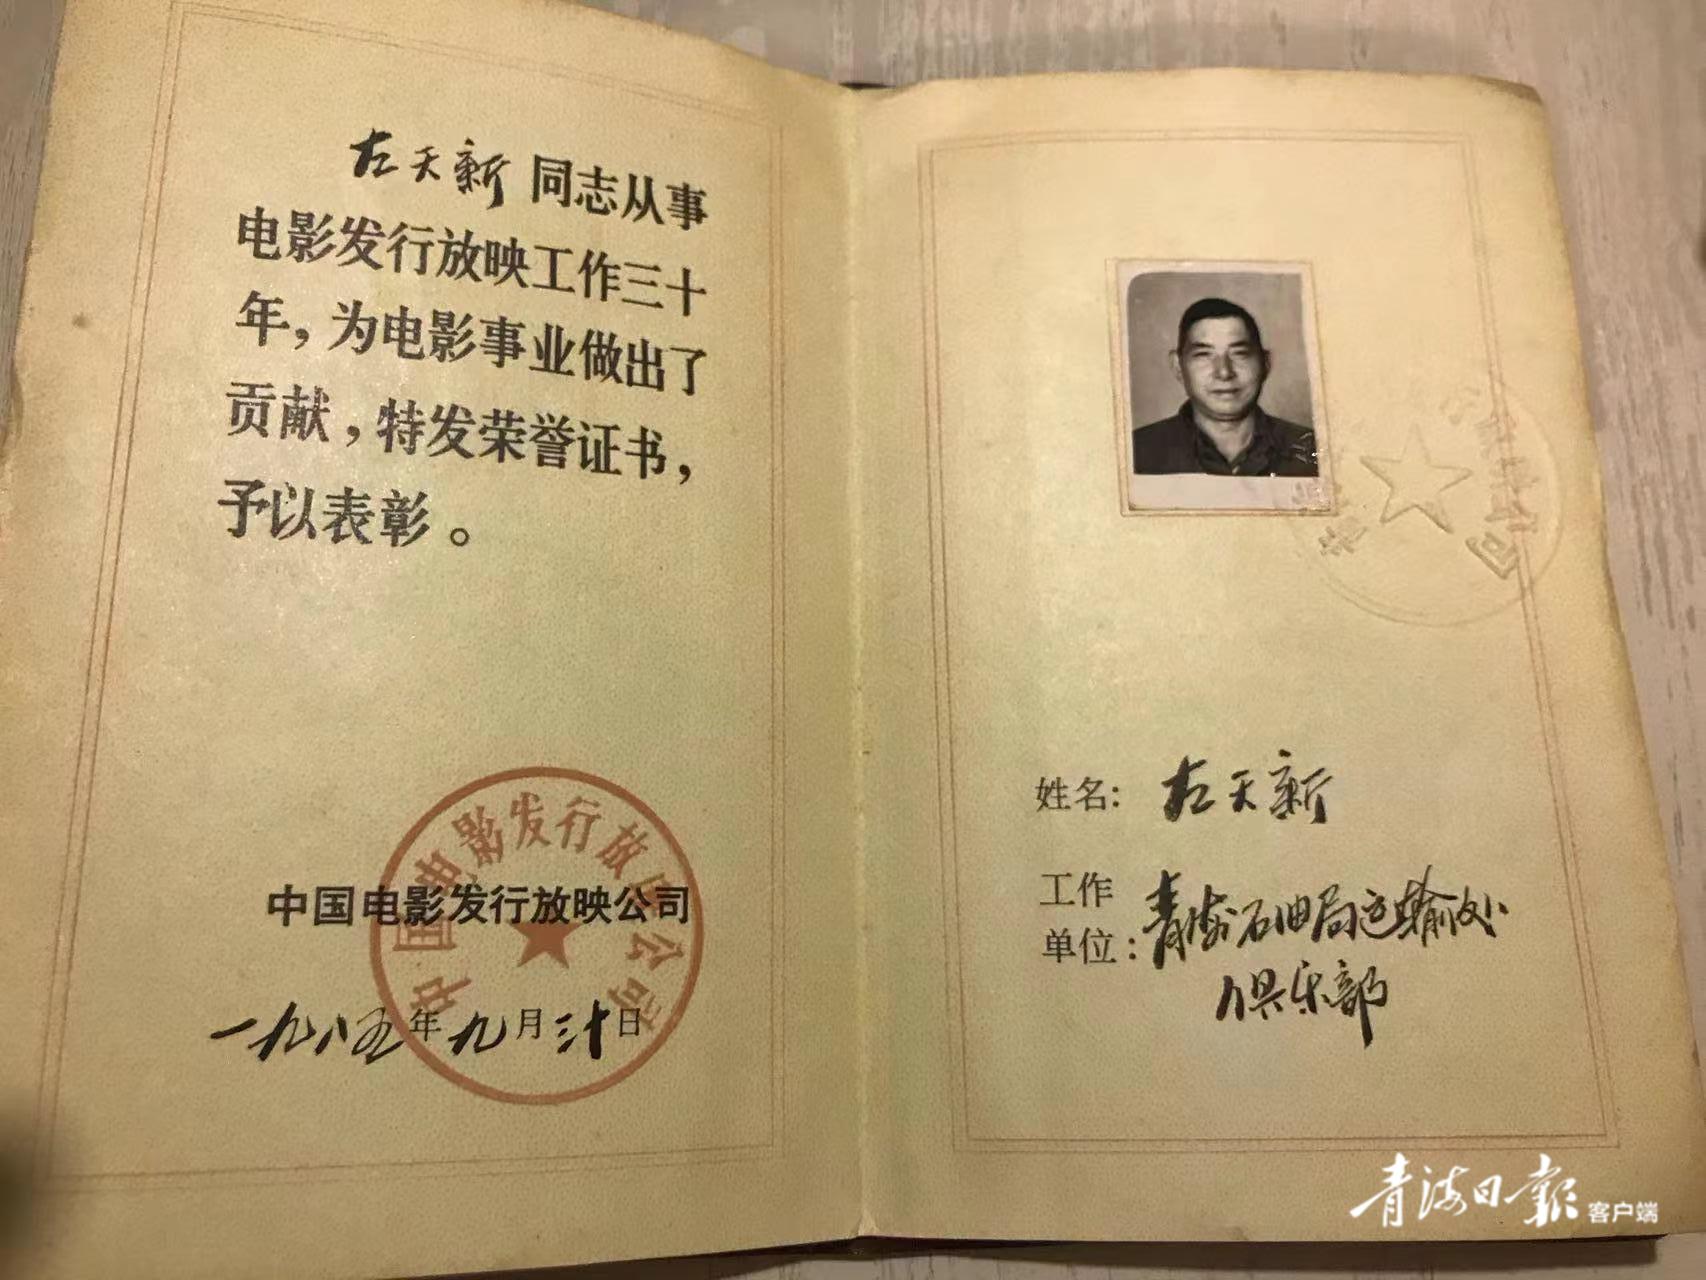 左天新 同志从事
电影发行放映工作三十
年，为电影事业做出了
贡献，特发荣誉证书，
予以表彰。
中国电影发行放映公司
中国电影发行放映公司
一九八五年九月三十日
姓名：左天新
工作
单位：青海石油局运输处
俱乐部
青海日报 客户端